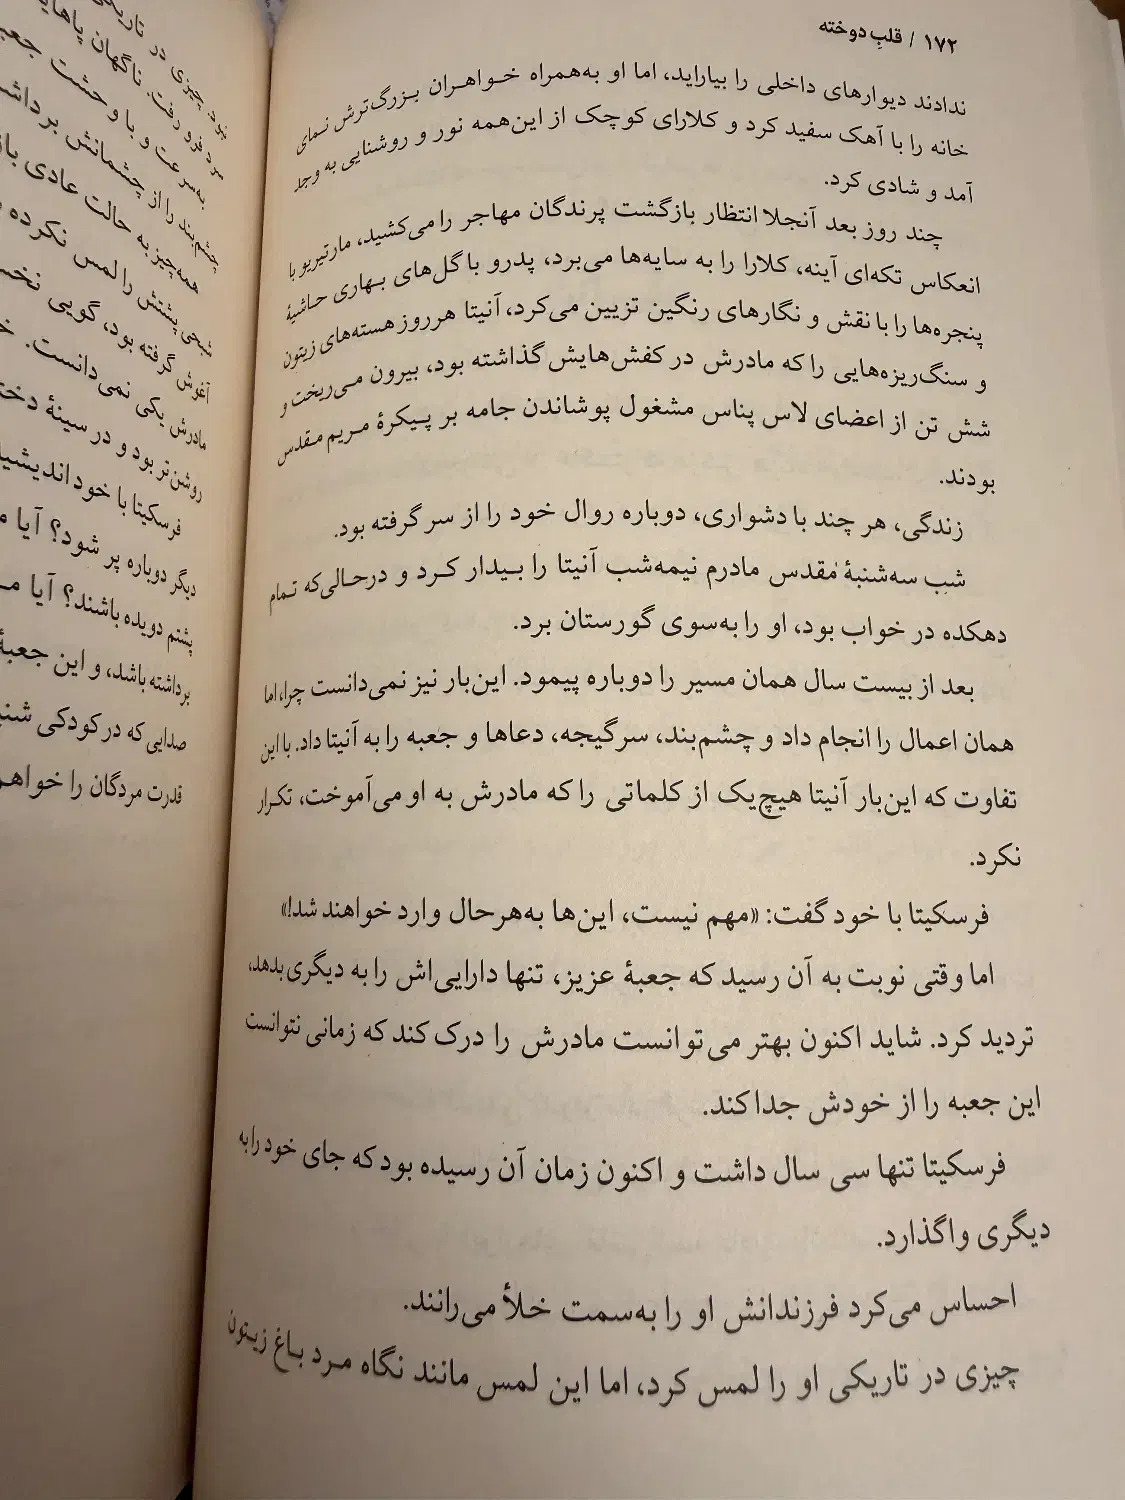 ۱۷۲ / قلبِ دوخته
ندادند دیوارهای داخلی را بیاراید، اما او به‌همراه خواهران بزرگ‌ترش نمای
خانه را با آهک سفید کرد و کلارای کوچک از این‌همه نور و روشنایی به وجد
آمد و شادی کرد.
چند روز بعد آنجلا انتظار بازگشت پرندگان مهاجر را می‌کشید، مارتیریو با
انعکاس تکه‌ای آینه، کلارا را به سایه‌ها می‌برد، پدرو با گل‌های بهاری حاشیهٔ
پنجره‌ها را با نقش و نگارهای رنگین تزیین می‌کرد، آنیتا هر روز هسته‌های زیتون
و سنگ‌ریزه‌هایی را که مادرش در کفش‌هایش گذاشته بود، بیرون می‌ریخت و
شش تن از اعضای لاس پناس مشغول پوشاندن جامه بر پیکرهٔ مریم مقدس
بودند.
زندگی، هر چند با دشواری، دوباره روال خود را از سر گرفته بود.
شب سه‌شنبهٔ مقدس مادرم نیمه‌شب آنیتا را بیدار کرد و درحالی‌که تمام
دهکده در خواب بود، او را به‌سوی گورستان برد.
بعد از بیست سال همان مسیر را دوباره پیمود. این‌بار نیز نمی‌دانست چرا، اما
همان اعمال را انجام داد و چشم‌بند، سرگیجه، دعاها و جعبه را به آنیتا داد. با این
تفاوت که این‌بار آنیتا هیچ‌یک از کلماتی را که مادرش به او می‌آموخت، تکرار
نکرد.
فرسکیتا با خود گفت: «مهم نیست، این‌ها به‌هرحال وارد خواهند شد!»
اما وقتی نوبت به آن رسید که جعبهٔ عزیز، تنها دارایی‌اش را به دیگری بدهد،
تردید کرد. شاید اکنون بهتر می‌توانست مادرش را درک کند که زمانی نتوانست
این جعبه را از خودش جدا کند.
فرسکیتا تنها سی سال داشت و اکنون زمان آن رسیده بود که جای خود را به
دیگری واگذارد.
احساس می‌کرد فرزندانش او را به‌سمت خلأ می‌رانند.
چیزی در تاریکی او را لمس کرد، اما این لمس مانند نگاه مرد باغ زیتون
بود چیزی در
سرد فرو رفت. ناگهان
به‌سرعت و با وحشت
چشم‌بند را از چشمانش
همه‌چیز به حالت عادی
شبحی پشتش را لمس نکرده
آغوش گرفته بود، گویی
مادرش یکی نمی‌دانست.
روشن‌تر بود و در سینهٔ
فرسکیتا با خود
دیگر دوباره پر شود؟ آیا
پشتم دویده باشند؟ آیا
برداشته باشد، و این جعبهٔ
صدایی که در کودکی
قدرت مردگان را